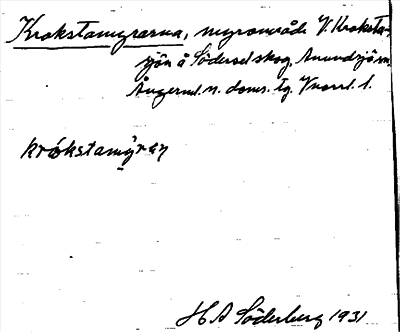 Krokstamyrarna, myrområde V. Kroksta-
sjön å Södersel skog, Anundsjö sn.
Ångerml. n. doms. tg. Vnorrl. l.
krókstamyran
H A Söderberg 1931